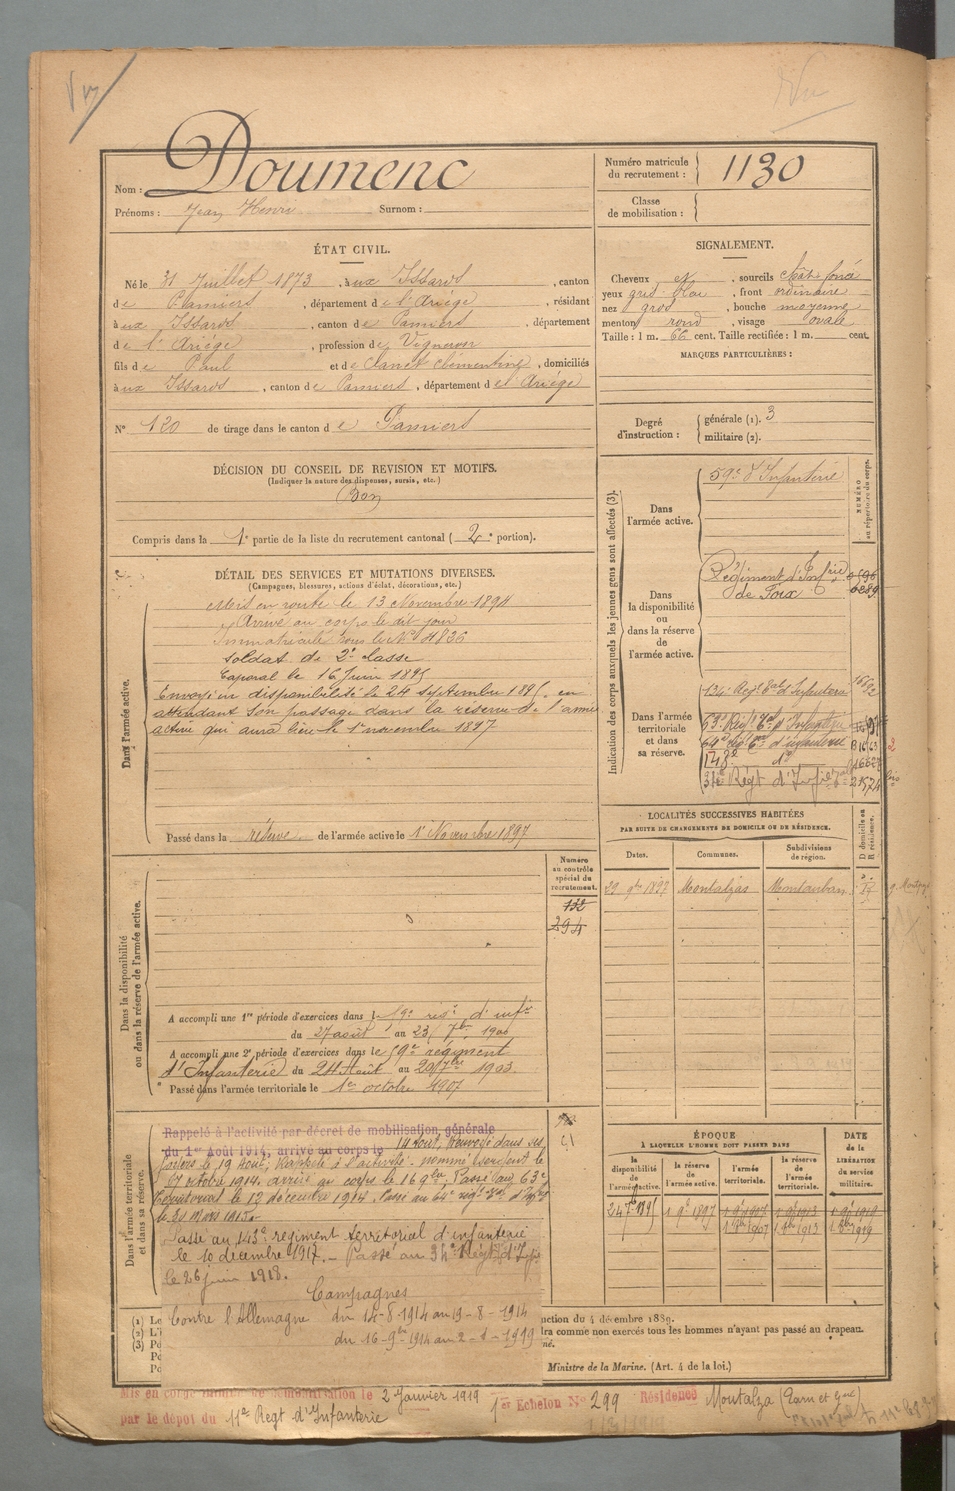 Nom : Doumenc
Prénoms : Jean Henri Surnom :
Numéro matricule du recrutement : 1130
Classe de mobilisation :
ÉTAT CIVIL.
Né le 31 Juillet 1873, à ux Issards, canton
de Pamiers, département de l'Ariège, résidant
à ux Issards, canton de Pamiers, département
de l'Ariège, profession de Vigneron
fils de Paul et de Clémentine, domiciliés
à ux Issards, canton de Pamiers, département del Ariège
N° 120 de tirage dans le canton de Pamiers
SIGNALEMENT.
Cheveux et, sourcils chât. foncé
yeux gris bleu, front ordinaire
nez gros, bouche moyenne
menton rond, visage ovale
Taille : 1 m. 66 cent. Taille rectifiée : 1 m. cent.
MARQUES PARTICULIÈRES :
Degré d'instruction : générale (1). 3
militaire (2).
DÉCISION DU CONSEIL DE REVISION ET MOTIFS.
(Indiquer la nature des dispenses, sursis, etc.)
Bon
Compris dans la 1e partie de la liste du recrutement cantonal (2e portion).
DÉTAIL DES SERVICES ET MUTATIONS DIVERSES.
(Campagnes, blessures, actions d'éclat, décorations, etc.)
Dans l'armée active.
Mis en route le 13 Novembre 1894
Arrivé au corps le dit jour
Immatriculé sous le N° 4836
Soldat de 2e classe
Caporal le 16 Juin 1895
Envoyé en disponibilité le 24 septembre 1895 en
attendant son passage dans la réserve de l'armée
active qui aura lieu le 1er novembre 1897
Passé dans la réserve de l'armée active le 1er Novembre 1897
Indication des corps auxquels les jeunes gens sont affectés (3).
NUMÉRO au répertoire du corps.
Dans l'armée active.
59e d'Infanterie
Dans la disponibilité ou dans la réserve de l'armée active.
Régiment d'Infrie
de Foix
Dans l'armée territoriale et dans sa réserve.
134e Régt tal d'Infanterie
63e Régt d'Infanterie
64e d'infanterie
143e do
34e Régt d'Infie
LOCALITÉS SUCCESSIVES HABITÉES
PAR SUITE DE CHANGEMENTS DE DOMICILE OU DE RÉSIDENCE.
Dates. Communes. Subdivisions de région. D domicile ou R résidence.
29 9bre 1897 Montalzas Montauban R
Dans la disponibilité ou dans la réserve de l'armée active.
Numéro au contrôle spécial du recrutement.
132
294
A accompli une 1re période d'exercices dans le 59e régt d'infie
du 27 août au 23 7bre 1900
A accompli une 2e période d'exercices dans le 59e régiment
d'Infanterie du 24 Août au 20 7bre 1903
Passé dans l'armée territoriale le 1er octobre 1907
Dans l'armée territoriale et dans sa réserve.
Rappelé à l'activité par décret de mobilisation générale
du 1er Août 1914, arrivé au corps le 14 Août, Renvoyé dans ses
foyers le 19 Août, Rappelé à l'activité - nommé sergent le
17 octobre 1914. arrivé au corps le 16 9bre, Passé au 63e
Territorial le 12 décembre 1914. Passé au 64e régt tal d'Infie
le 31 mars 1915.
Passé au 143e régiment territorial d'infanterie
le 10 décembre 1917. - Passé au 34e Régt d'Infie
le 26 juin 1918.
Campagnes
Contre l'Allemagne du 14-8-1914 au 19-8-1914
du 16-9bre 1914 au 2-1-1919
ÉPOQUE
À LAQUELLE L'HOMME DOIT PASSER DANS
la disponibilité de l'armée active. la réserve de l'armée active. l'armée territoriale. la réserve de l'armée territoriale.
DATE de la LIBÉRATION du service militaire.
24 7bre 1895 1 9bre 1897 1 9bre 1907 1 9bre 1913 1 9bre 1919
1 8bre 1907 1 8bre 1913 1 8bre 1919
(1) Le
(2) L'i
(3) Po
Po
Po
ction du 4 décembre 1889.
dra comme non exercés tous les hommes n'ayant pas passé au drapeau.
né.
Ministre de la Marine. (Art. 4 de la loi.)
Mis en congé illimité de démobilisation le 2 Janvier 1919 1er Echelon N° 299 Résidence Montalza (Tarn et Gne)
par le dépot du 11e Regt d'Infanterie